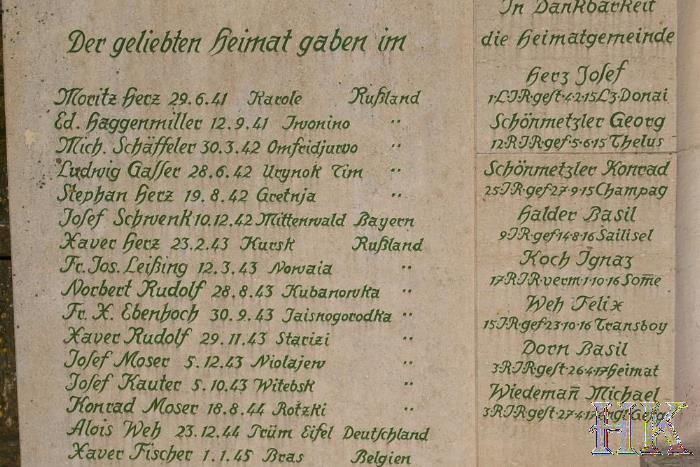 Der geliebten Heimat gaben im
Moritz Herz 29.6.41 Karole Rußland
Ed. Haggenmiller 12.9.41 Irvonino "
Mich. Schäffeler 30.3.42 Omfridjurvo "
Ludwig Gasser 28.6.42 Urynok Tim "
Stephan Herz 19.8.42 Gretnja "
Josef Schwenk 10.12.42 Mittenwald Bayern
Xaver Herz 23.2.43 Kursk Rußland
Fr. Jos. Leißing 12.3.43 Norvaia "
Norbert Rudolf 28.8.43 Kubanovka "
Fr. X. Ebenhoch 30.9.43 Jaisnogorodka "
Xaver Rudolf 29.11.43 Starizi "
Josef Moser 5.12.43 Niolajew "
Josef Kauter 5.10.43 Witebsk "
Konrad Moser 18.8.44 Rotzki "
Alois Weh 23.12.44 Prüm Eifel Deutschland
Xaver Fischer 1.1.45 Bras Belgien
In Dankbarkeit
die Heimatgemeinde
Herz Josef
1·LIR·gest·4·2·15 Lz·Donai
Schönmetzler Georg
12RIR·gef·5·6·15 Thelus
Schönmetzler Konrad
25·IR·gef·27·9·15 Champag
Halder Basil
9·IR·gef·14·8·16 Sailisel
Koch Ignaz
17·RIR·verm·1·10·16 Som̅e
Weh Felix
15IR·gef·23·10·16 Transloy
Dorn Basil
3·RIR·gest·26·4·17 Heimat
Wiedeman̅ Michael
3·RIR·gest·27·4·17
HK